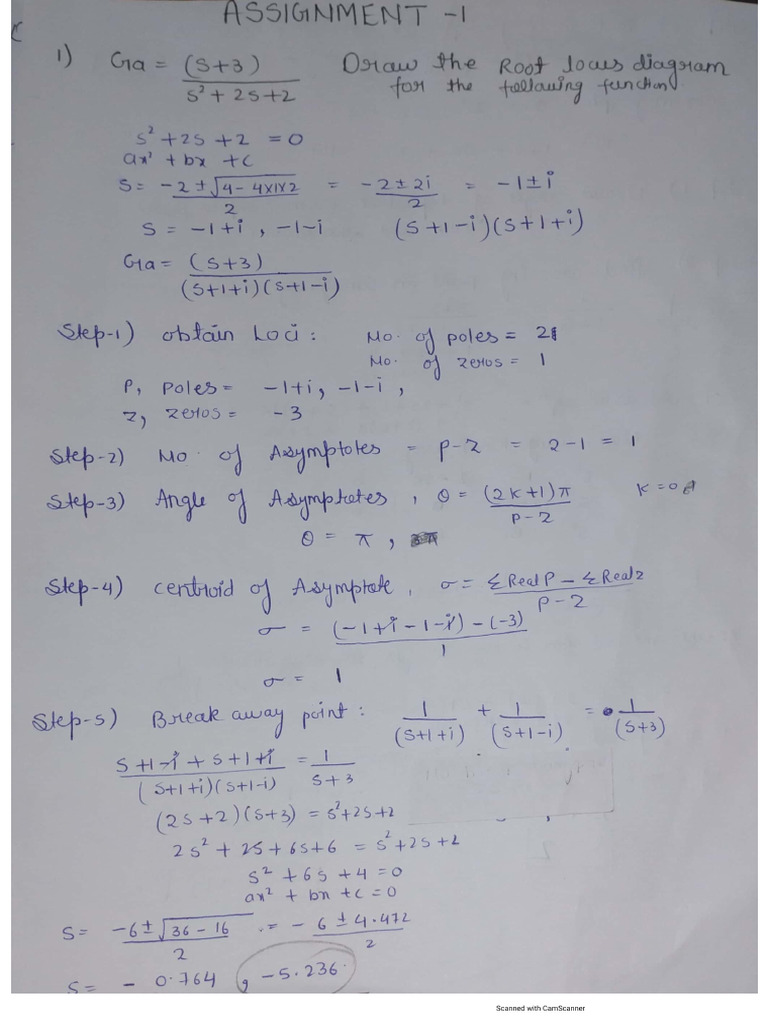 ASSIGNMENT -1
1) Ga = (S+3) / S² + 2S+2 Draw the Root locus diagram
for the following function.
S² + 2S + 2 = 0
ax² + bx + c
S = -2 ± √4 - 4×1×2 / 2 = -2 ± 2i / 2 = -1 ± i
S = -1+i , -1-i (S+1-i)(S+1+i)
Ga = (S+3) / (S+1+i)(S+1-i)
Step-1) obtain Loci : No. of poles = 2
No. of zeros = 1
P, poles = -1+i, -1-i ,
Z, zeros = -3
Step-2) No. of Asymptotes = P-Z = 2-1 = 1
Step-3) Angle of Asymptotes , θ = (2K+1)π / P-Z K=0
θ = π ,
Step-4) Centroid of Asymptote , σ = ΣRealP - ΣRealz / P-Z
σ = (-1+i-1-i) - (-3) / 1
σ = 1
Step-5) Break away point : 1/(S+1+i) + 1/(S+1-i) = 1/(S+3)
S+1-i+S+1+i / (S+1+i)(S+1-i) = 1 / S+3
(2S+2)(S+3) = S²+2S+2
2S² + 2S + 6S+6 = S²+2S+2
S² + 6S + 4 = 0
ax² + bx + c = 0
S = -6 ± √36 - 16 / 2 = - 6 ± 4.472 / 2
S = - 0.764 , -5.236.
Scanned with CamScanner